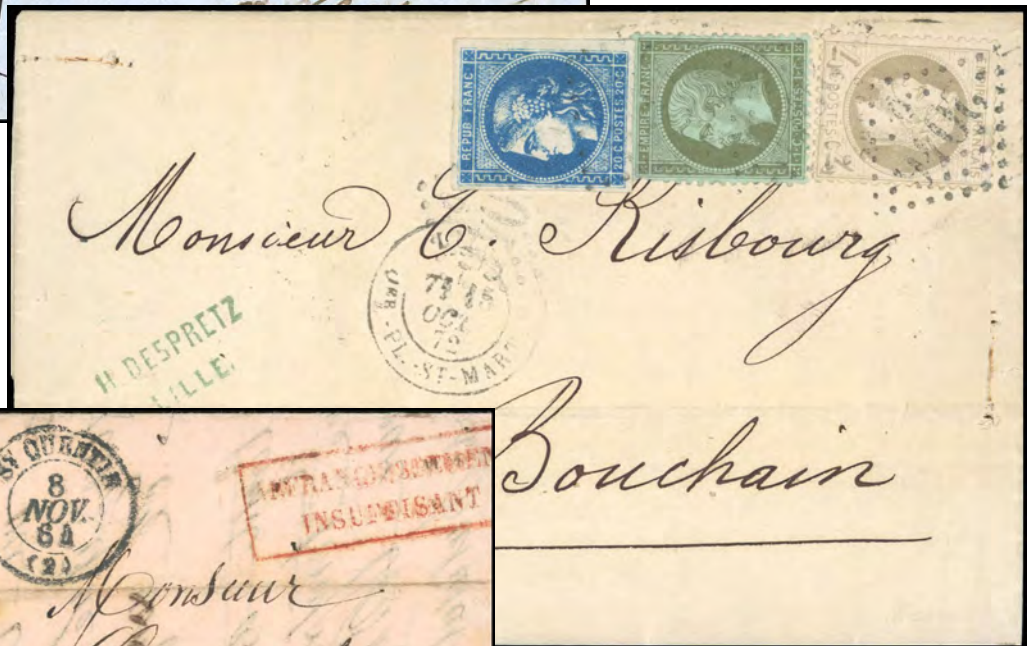 REPUB FRANC
20 C POSTES 20 C
EMPIRE FRANC
1 C POSTES 1 C
POSTES
Monsieur E. Risbourg
OCT
72
PL. ST-MART
H DESPRETZ
LILLE.
Bouchain
ST QUENTIN
8
NOV.
64
(2)
AFFRANCHISSEMENT
INSUFFISANT
Monsieur